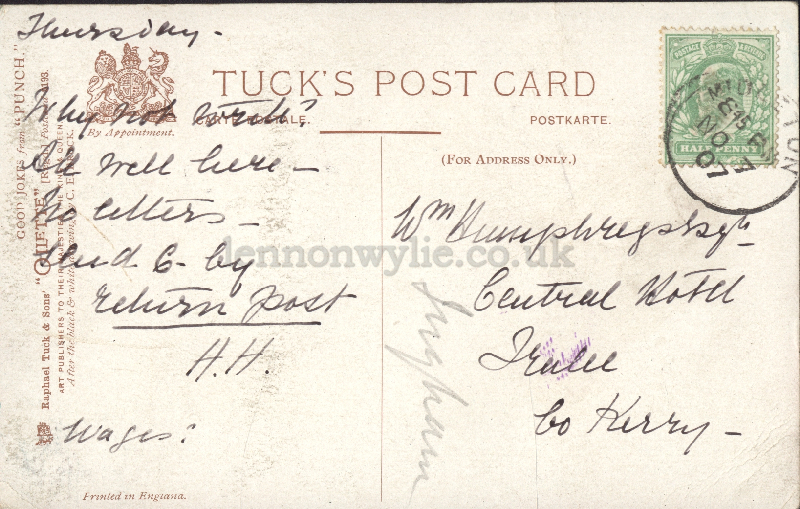 Thursday -
Why not write?
All well here -
No letters -
Send 6- by
return post
H.H.
Wages?
TUCK'S POST CARD
CARTE POSTALE.
POSTKARTE.
By Appointment.
(FOR ADDRESS ONLY.)
Wm Humphreys Esqr
Central Hotel
Tralee
Co Kerry -
Ingham
GOOD JOKES from "PUNCH."
Raphael Tuck & Sons'
ART PUBLISHERS TO THEIR MAJESTIES THE KING & QUEEN
After the black & white drawing by C. E.
Printed in England.
POSTAGE & REVENUE
HALFPENNY
8 45 PM
NO
07
lennonwylie.co.uk